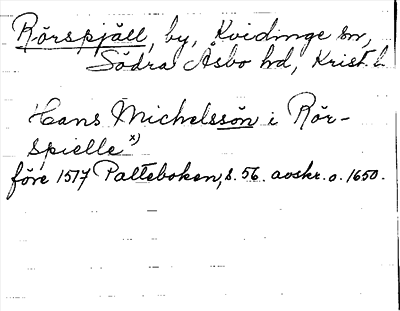 Rörspjäll, by, Kvidinge sn,
Södra Åsbo hd, Krist. l.
Hans Michelssön i Rör-
spielle x)
före 1517 Palteboken, s. 56. avskr. o. 1650.